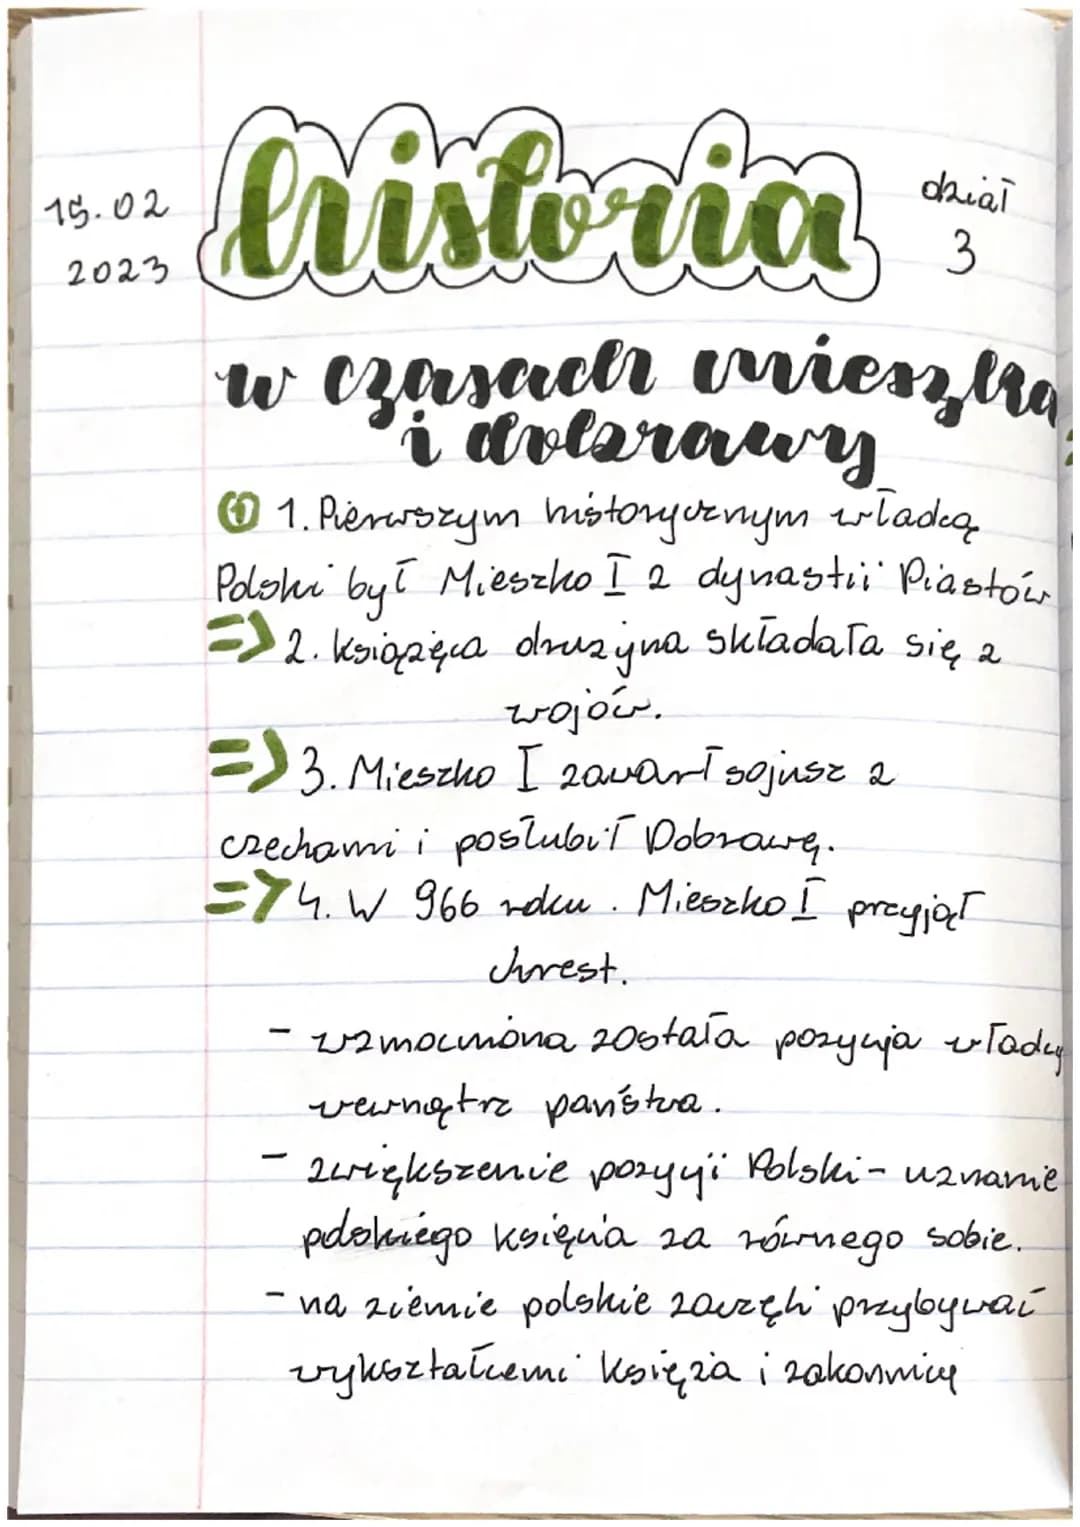 15.02
2023
historia
dział
3
w czasach mieszka
i dobrawy
1. Pierwszym historycznym władcą
Polski był Mieszko I z dynastii Piastów
=> 2. Książęca drużyna składała się z
wojów.
=> 3. Mieszko I zawarł sojusz z
czechami i poślubił Dobrawę.
=> 4. W 966 roku. Mieszko I przyjął
chrest.
- wzmocniona została pozycja władcy
wewnątrz państwa.
- zwiększenie pozycji Polski - uznanie
polskiego księcia za równego sobie.
- na ziemie polskie zaczęli przybywać
wykształceni księża i zakonnicy